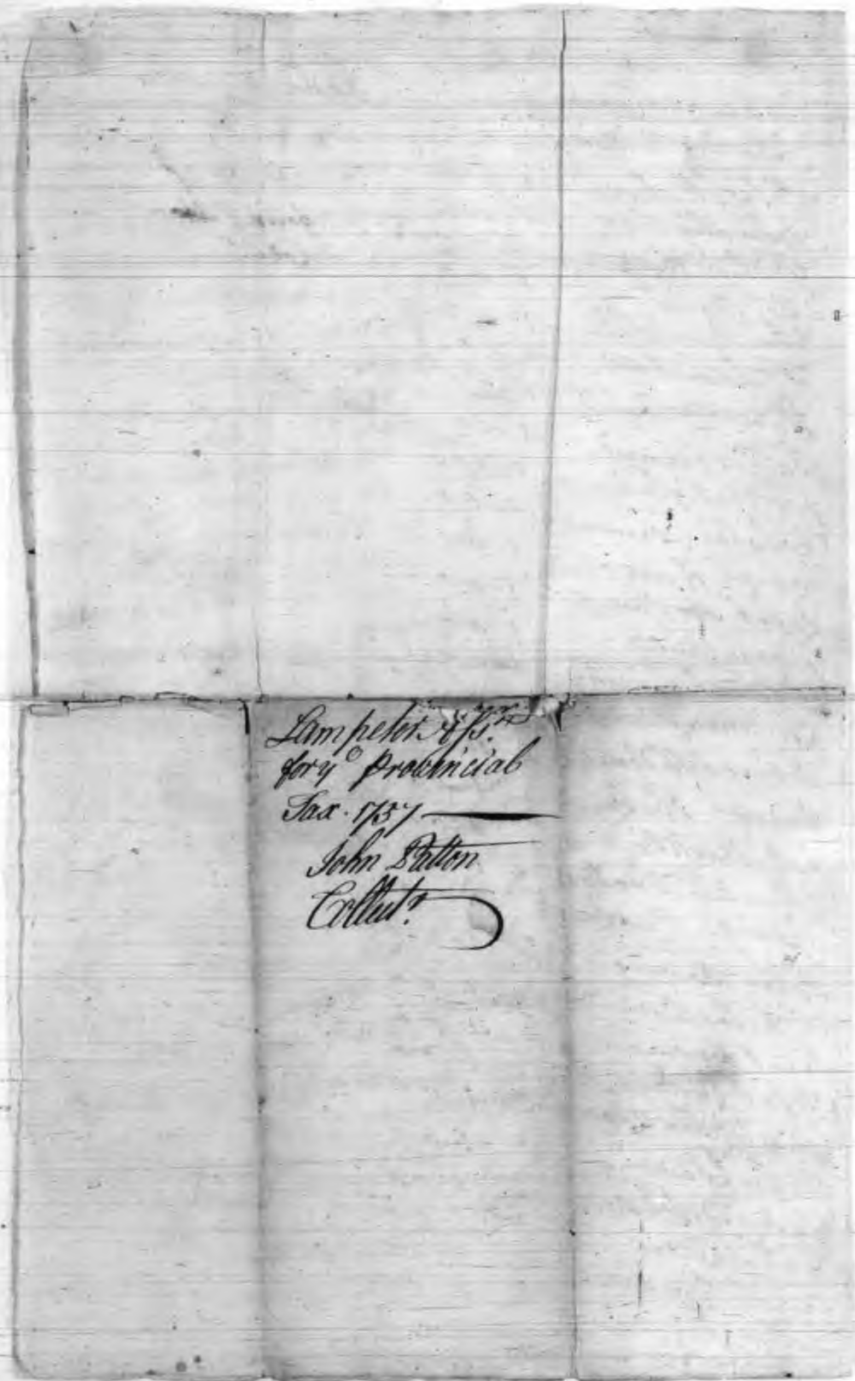 Lampeter Ass.mt
for ye Provincial
Tax. 1757
John Patton
Collectr.